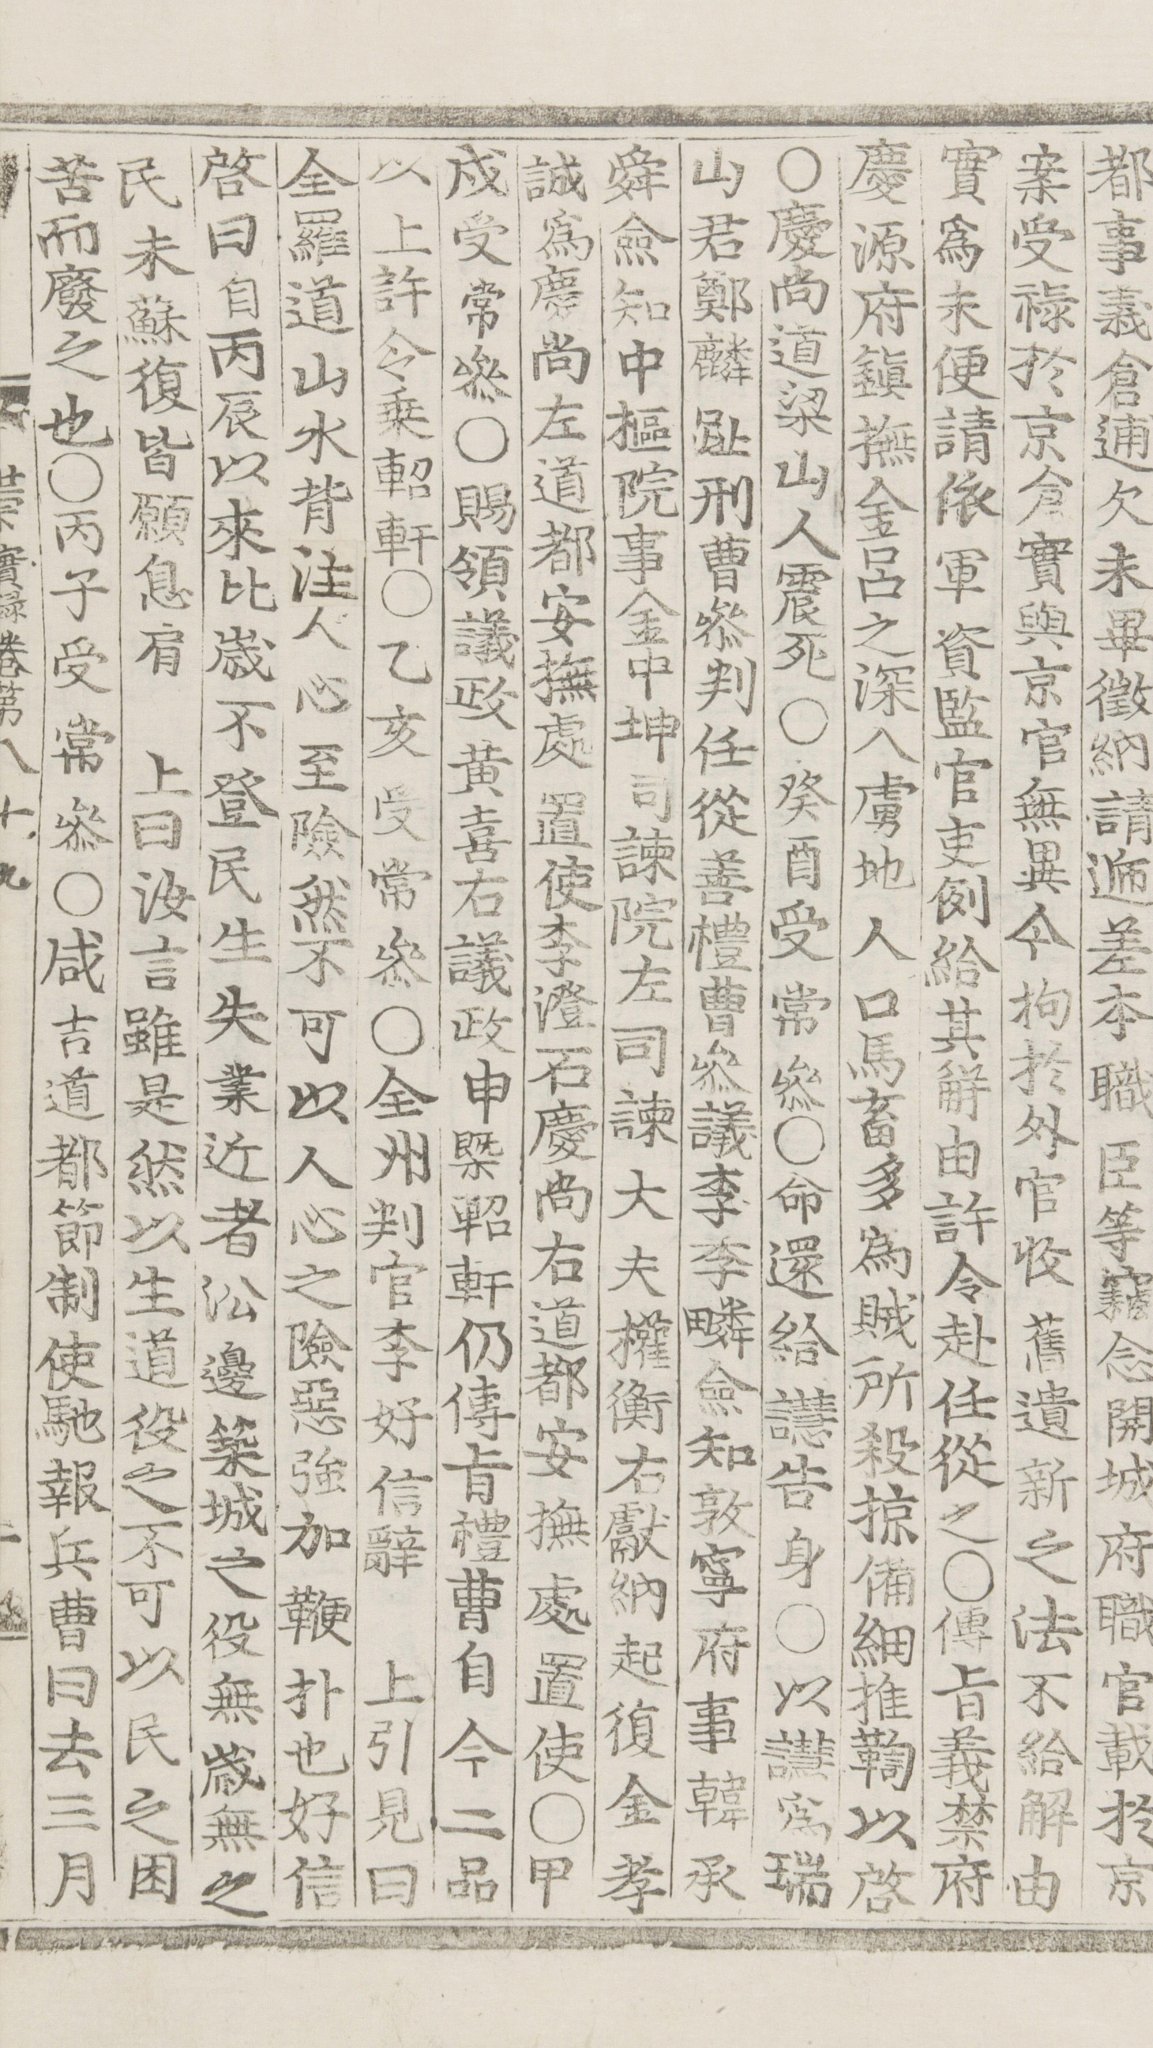 都事義倉逋欠未畢徵納請遞差本職臣等竊念開城府職官載於京
案受祿於京倉實與京官無異今拘於外官收舊遺新之法不給解由
實爲未便請依軍資監官吏例給其解由許令赴任從之○傳旨義禁府
慶源府鎭撫金呂之深入虜地人口馬畜多爲賊所殺掠備細推鞫以啓
○慶尙道梁山人震死○癸酉受常參○命還給譓告身○以讃爲瑞
山君鄭麟趾刑曹參判任從善禮曹參議李李疄僉知敦寧府事韓承
舜僉知中樞院事金中坤司諫院左司諫大夫權衡右獻納起復金孝
誠爲慶尙左道都安撫處置使李澄石慶尙右道都安撫處置使○甲
戌受常參○賜領議政黃喜右議政申槩軺軒仍傳旨禮曹自今二品
以上許令乘軺軒○乙亥受常參○全州判官李好信辭 上引見曰
全羅道山水背注人心至險然不可以人心之險惡強加鞭扑也好信
啓曰自丙辰以來比歲不登民生失業近者沿邊築城之役無歲無之
民未蘇復皆願息肩 上曰汝言雖是然以生道役之不可以民之困
苦而廢之也○丙子受常參○咸吉道都節制使馳報兵曹曰去三月
宗實錄卷第八十九